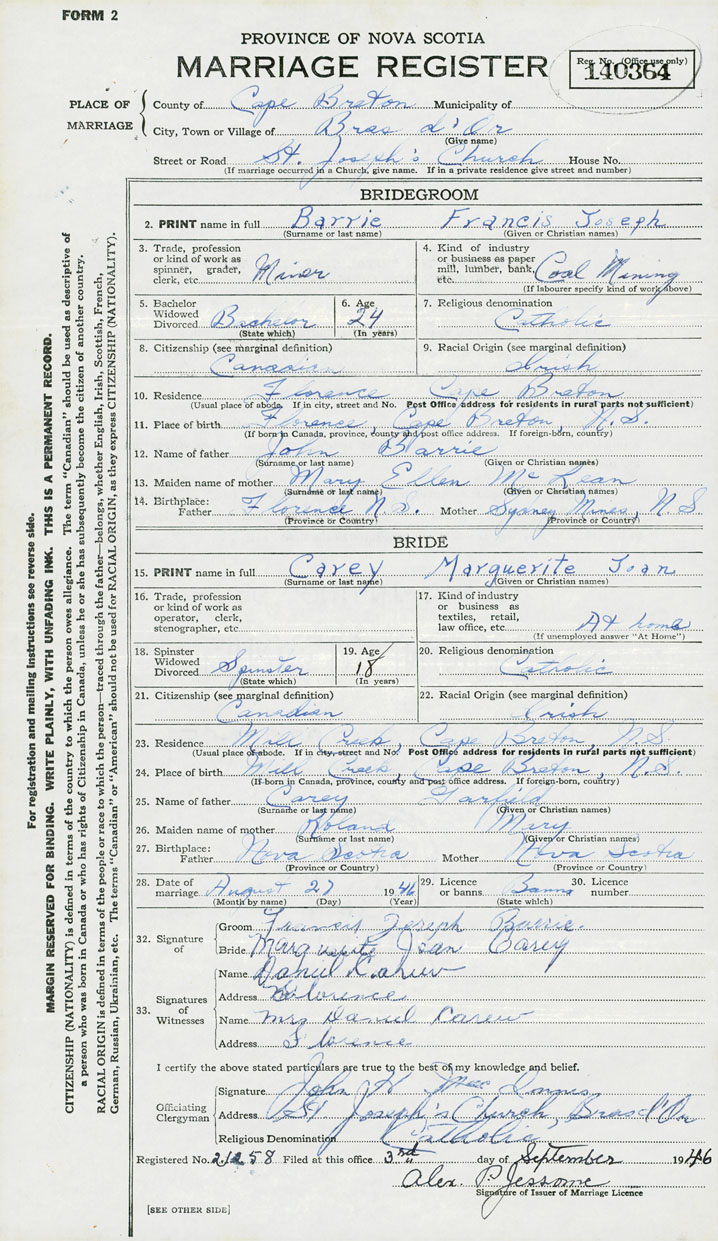 FORM 2
PROVINCE OF NOVA SCOTIA
MARRIAGE REGISTER
Reg. No. (Office use only)
140364
PLACE OF MARRIAGE
County of Cape Breton Municipality of
City, Town or Village of Bras d'Or
(Give name)
Street or Road St. Joseph's Church House No.
(If marriage occurred in a Church, give name. If in a private residence give street and number)
BRIDEGROOM
2. PRINT name in full Barrie Francis Joseph
(Surname or last name) (Given or Christian names)
3. Trade, profession or kind of work as spinner, grader, clerk, etc. Miner
4. Kind of industry or business as paper mill, lumber, bank, etc. Coal Mining
(If labourer specify kind of work above)
5. Bachelor Widowed Divorced Bachelor
(State which)
6. Age 24
(In years)
7. Religious denomination
Catholic
8. Citizenship (see marginal definition)
Canadian
9. Racial Origin (see marginal definition)
Irish
10. Residence Florence Cape Breton
(Usual place of abode. If in city, street and No. Post Office address for residents in rural parts not sufficient)
11. Place of birth Florence, Cape Breton, N.S.
(If born in Canada, province, county and post office address. If foreign-born, country)
12. Name of father John Barrie
(Surname or last name) (Given or Christian names)
13. Maiden name of mother Mary Ellen McLean
(Surname or last name) (Given or Christian names)
14. Birthplace: Father Florence N.S. Mother Sydney Mines, N.S
(Province or Country) (Province or Country)
BRIDE
15. PRINT name in full Carey Marguerite Joan
(Surname or last name) (Given or Christian names)
16. Trade, profession or kind of work as operator, clerk, stenographer, etc.
17. Kind of industry or business as textiles, retail, law office, etc. At home
(If unemployed answer "At Home")
18. Spinster Widowed Divorced Spinster
(State which)
19. Age 18
(In years)
20. Religious denomination
Catholic
21. Citizenship (see marginal definition)
Canadian
22. Racial Origin (see marginal definition)
Irish
23. Residence Mill Creek, Cape Breton, N.S.
(Usual place of abode. If in city, street and No. Post Office address for residents in rural parts not sufficient)
24. Place of birth Mill Creek, Cape Breton, N.S.
(If born in Canada, province, county and post office address. If foreign-born, country)
25. Name of father Carey Garfield
(Surname or last name) (Given or Christian names)
26. Maiden name of mother Roland Mary
(Surname or last name) (Given or Christian names)
27. Birthplace: Father Nova Scotia Mother Nova Scotia
(Province or Country) (Province or Country)
28. Date of marriage August 27 1946
(Month by name) (Day) (Year)
29. Licence or banns Banns
(State which)
30. Licence number
32. Signature of
Groom Francis Joseph Barrie
Bride Marguerite Joan Carey
33. Signatures of Witnesses
Name Daniel Carew
Address Florence
Name Mrs Daniel Carew
Address Florence
I certify the above stated particulars are true to the best of my knowledge and belief.
Officiating Clergyman
Signature John H
Address St. Joseph's Church, Bras d'Or
Religious Denomination Catholic
Registered No. 21258 Filed at this office 3rd day of September 1946
Alex. P. Jessome
Signature of Issuer of Marriage Licence
[SEE OTHER SIDE]
For registration and mailing instructions see reverse side.
MARGIN RESERVED FOR BINDING. WRITE PLAINLY, WITH UNFADING INK. THIS IS A PERMANENT RECORD.
CITIZENSHIP (NATIONALITY) is defined in terms of the country to which the person owes allegiance. The term "Canadian" should be used as descriptive of
a person who was born in Canada or who has rights of Citizenship in Canada, unless he or she has subsequently become the citizen of another country.
RACIAL ORIGIN is defined in terms of the people or race to which the person—traced through the father—belongs, whether English, Irish, Scottish, French,
German, Russian, Ukrainian, etc. The terms "Canadian" or "American" should not be used for RACIAL ORIGIN, as they express CITIZENSHIP (NATIONALITY).